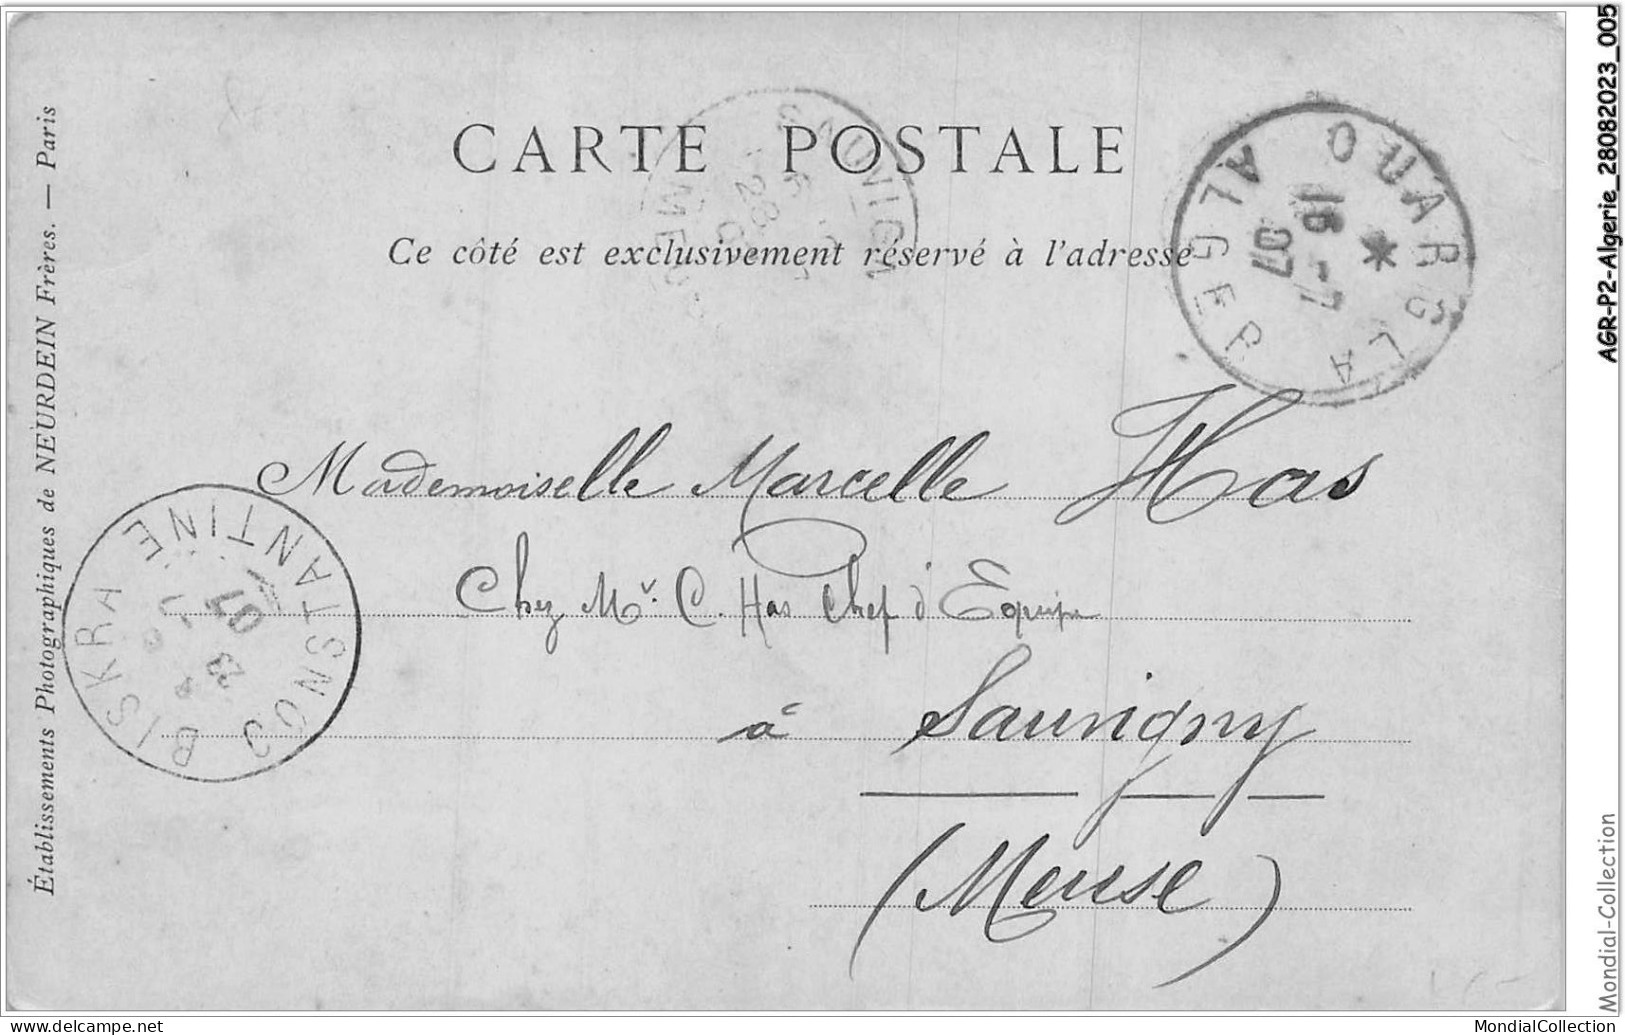 CARTE POSTALE
Ce côté est exclusivement réservé à l'adresse
OUARGLA
ALGER
16 -7
07
Mademoiselle Marcelle Has
Chez Mr. C. Has Chef d'Equipe
à Sauvigny
(Meuse)
BISKRA
CONSTANTINE
23 -7
07
SAUVIGN
28
MEU
Établissements Photographiques de NEURDEIN Frères. — Paris
AGR-P2-Algerie_28082023_005
Mondial-Collection
www.delcampe.net
MondialCollection